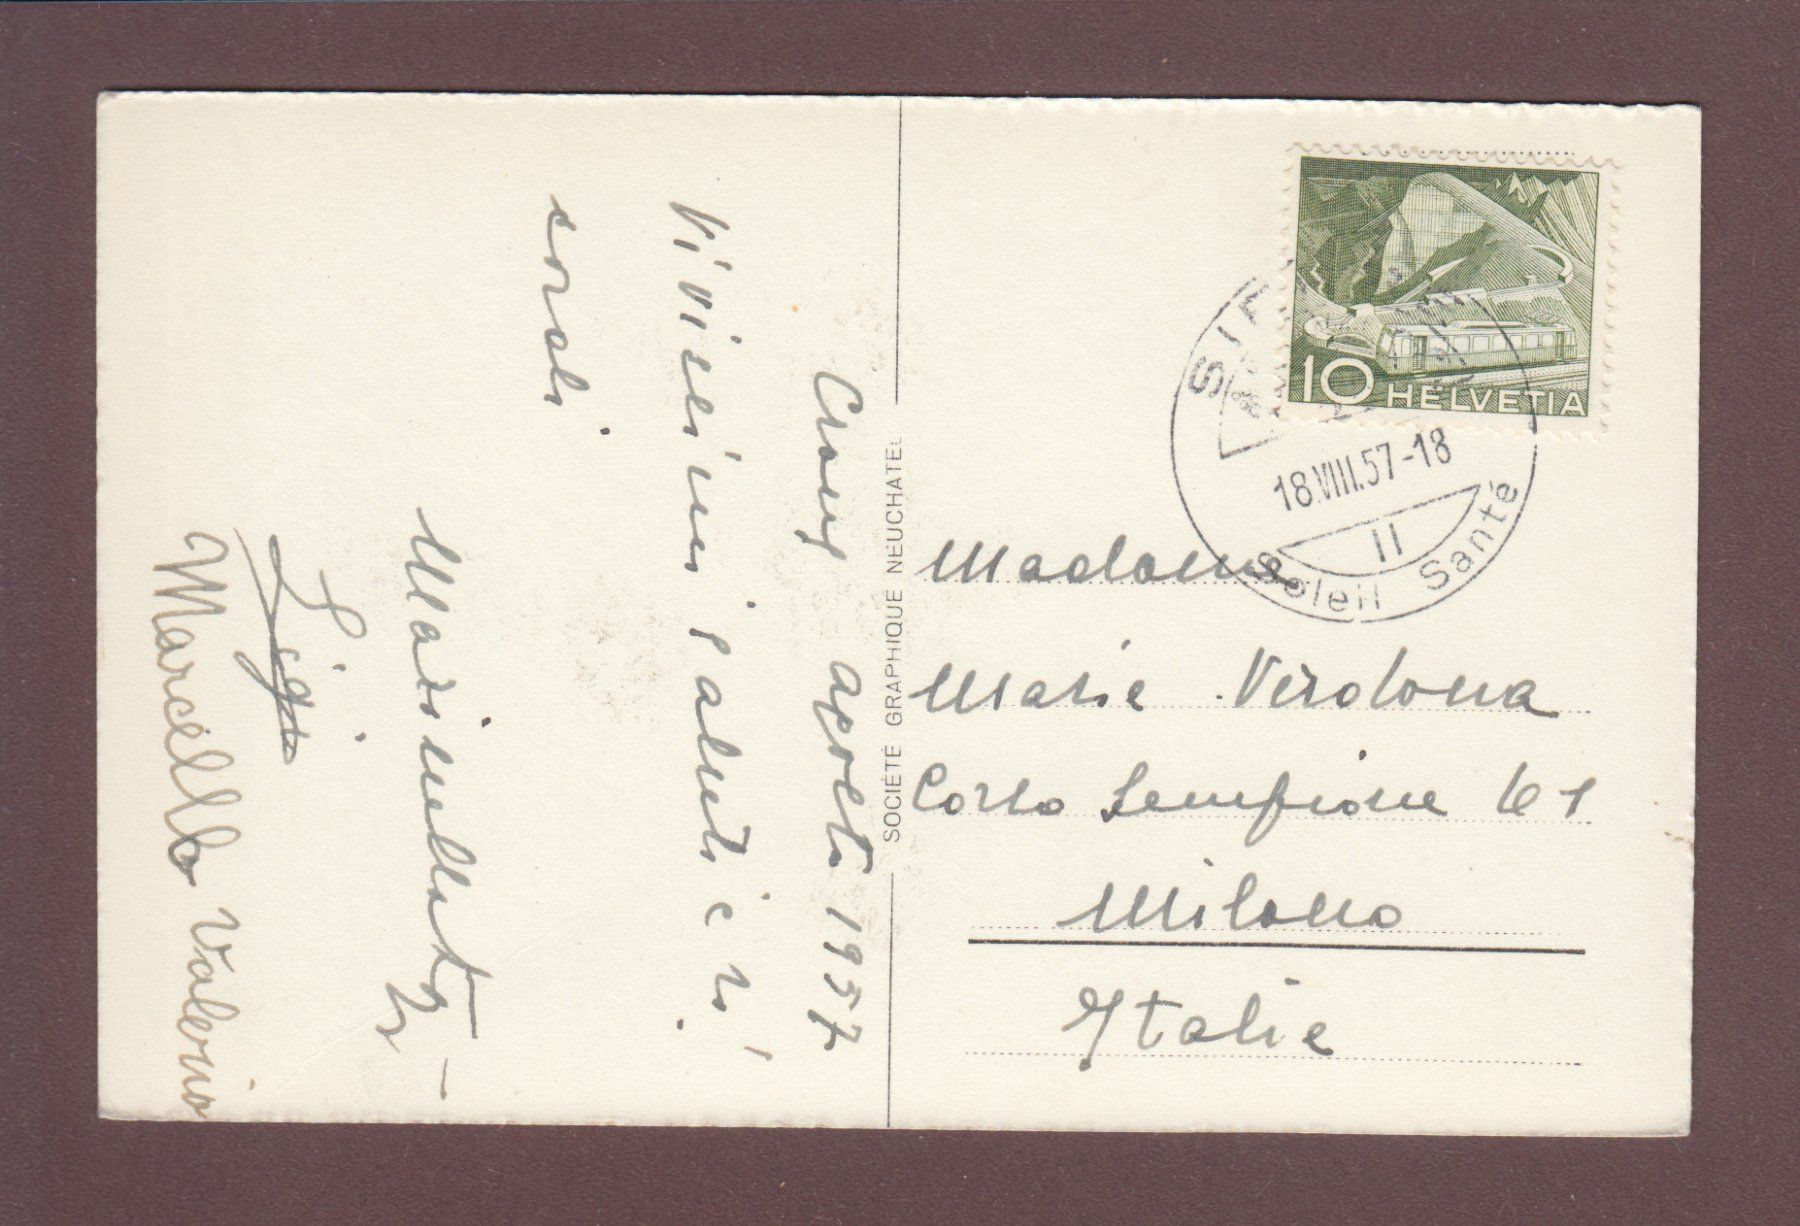 Crans agosto 1957
Vivissimi saluti e ri
cordi
Marinella
Marcello Valerio
SOCIÉTÉ GRAPHIQUE NEUCHATEL
10 HELVETIA
18.VIII.57-18
II
Soleil Santé
Madame
Marie Verdona
Corso Sempione 61
Milano
Italie